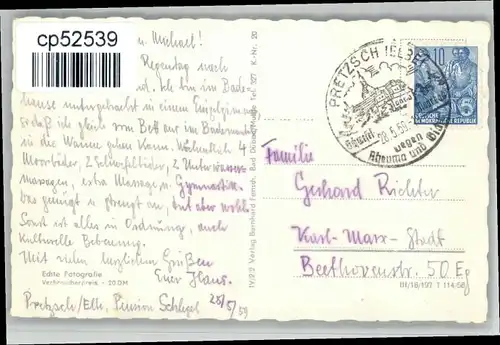 cp52539
u. Michael!
Regentag nach
Ich bin im Bade-
hause untergebracht in einem Einzelzimmer
so daß ich gleich vom Bett aus im Bademantel
in die Wanne gehen kann. Wöchentlich 4
Moorbäder, 2 Schwefelbäder, 2 Unterwasser-
massagen, extra Massagen, Gymnastik.
Das genügt u. strengt an, tut aber wohl.
Sonst ist alles in Ordnung, auch
kulturelle Betreuung.
Mit vielen herzlichen Grüßen
Euer Hans.
Echte Fotografie
Verbraucherpreis - 20 DM
Pretzsch/Elbe, Pension
28/5/59
IV/2/2 Verlag Bernhard Fernob. Bad Düben/Mulde Tel. 327 K-Nr. 20
PRETZSCH (ELBE)
28.5.59
gegen
Rheuma und
10
DEUTSCHE
DEMOKRATISCHE REPUBLIK
Familie
Gerhard Richter
Karl-Marx-Stadt
Beethovenstr. 50 Eg
III/18/197 1 114 58